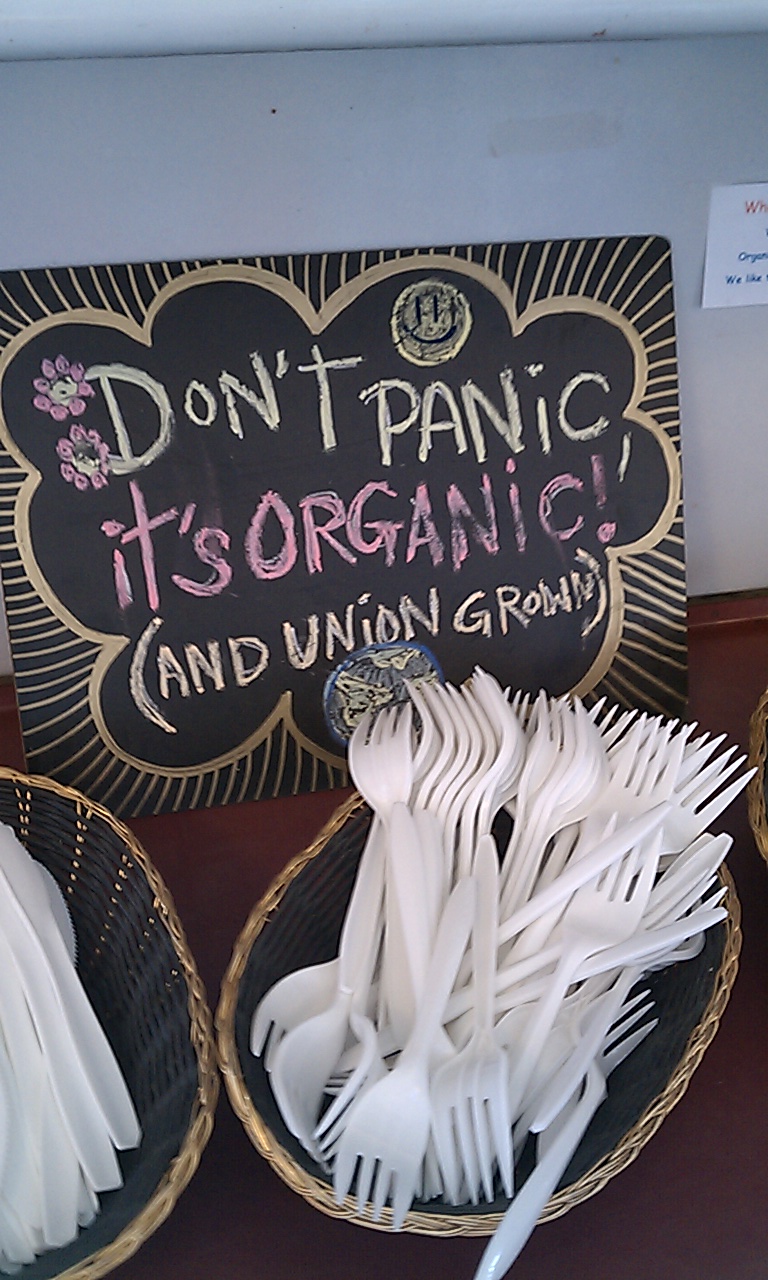 DON'T PANIC,
it's ORGANIC!
(AND UNION GROWN)
We like